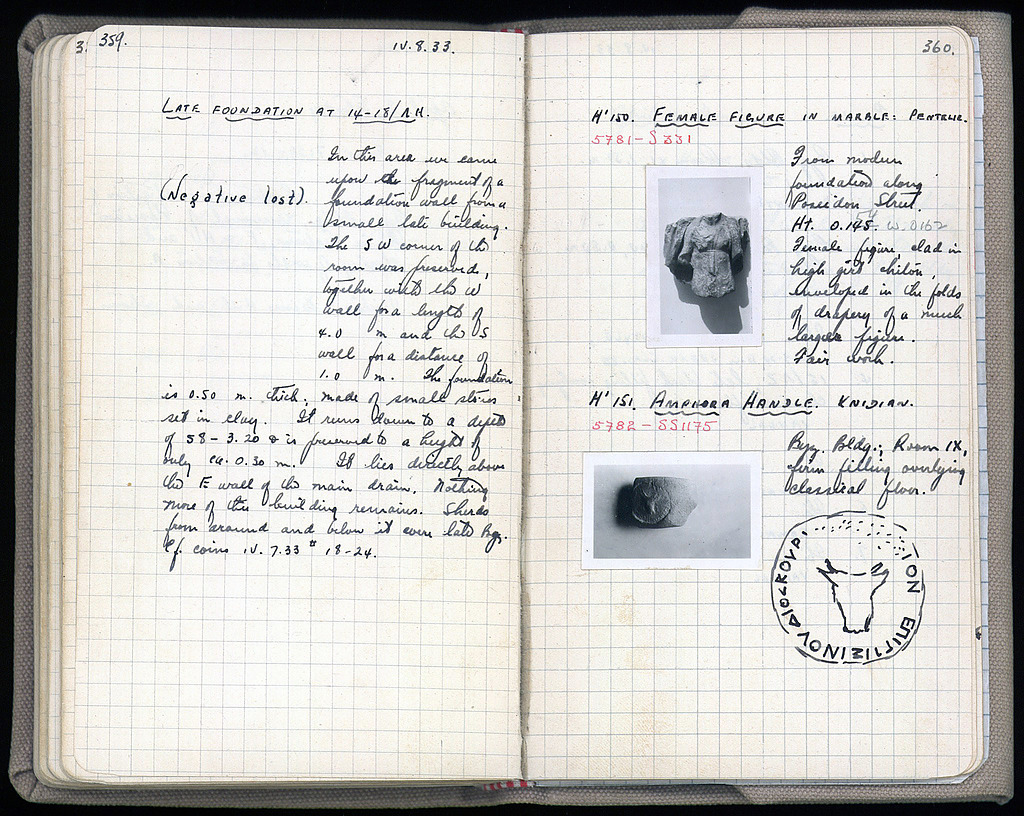 359.
IV.8.33.
LATE FOUNDATION AT 14-18/ΛΗ.
(Negative lost).
In this area we came
upon the fragment of a
foundation wall from a
small late building.
The SW corner of the
room was preserved,
together with the W
wall for a length of
4.0 m and the S
wall for a distance of
1.0 m. The foundation
is 0.50 m. thick, made of small stones
set in clay. It runs down to a depth
of 58 - 3.20 & is preserved to a height of
only ca. 0.30 m. It lies directly above
the E wall of the main drain. Nothing
more of this building remains. Sherds
from around and below it were late Byz.
Cf. coins IV.7.33 # 18-24.
360.
H'150. FEMALE FIGURE IN MARBLE: PENTELIC.
5781 - S 331
From modern
foundation along
Poseidon Street.
Ht. 0.145. W. 0.162
Female figure, clad in
high girt chiton,
enveloped in the folds
of drapery of a much
larger figure.
Fair work.
H'151. AMPHORA HANDLE. KNIDIAN.
5782 - SS1175
Byz. Bldg.; Room IX,
firm filling overlying
classical floor.
ΙΟΝ ΕΠΙΓΙΞΙΝΟΥ ΔΙΟΣΚΟΥΡΙ